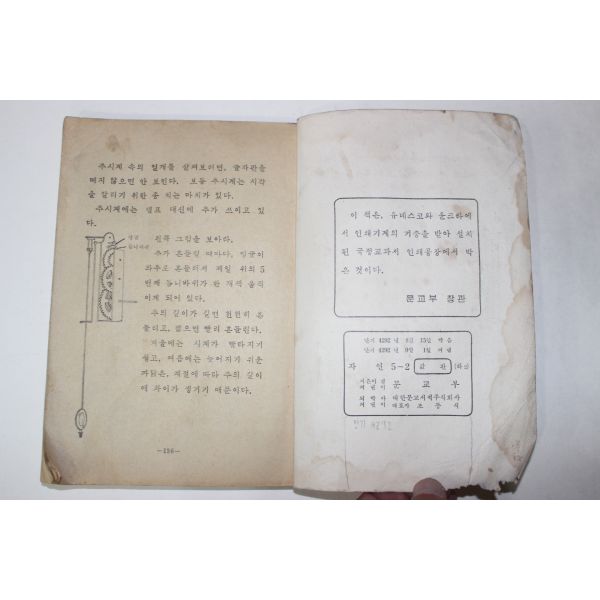 추시계 속의 얼개를 살펴보려면, 글자판을
떼지 않으면 안 보인다. 보통 추시계는 시각
을 알리기 위한 종 치는 마치가 있다.
추시계에는 템프 대신에 추가 쓰이고 있
다.
왼쪽 그림을 보아라.
추가 흔들릴 때마다, 앙글이
좌우로 흔들려서 제일 위의 5
번째 톱니바퀴가 한 개씩 움직
이게 되어 있다.
추의 길이가 길면 천천히 흔
들리고, 짧으면 빨리 흔들린다.
겨울에는 시계가 빨라지기
쉽고, 여름에는 늦어지기 쉬운
까닭은, 계절에 따라 추의 길이
에 차이가 생기기 때문이다.
—156—
이 책은, 유네스코와 운크라에
서 인쇄기계의 기증을 받아 설치
된 국정교과서 인쇄공장에서 박
은 것이다.
문교부 장관
단기 4292 년 8월 15일 박음
단기 4292 년 9월 1일 펴냄
자 연 5-2
문 교 부
대한문교서적주식회사
대표자 조 동 식